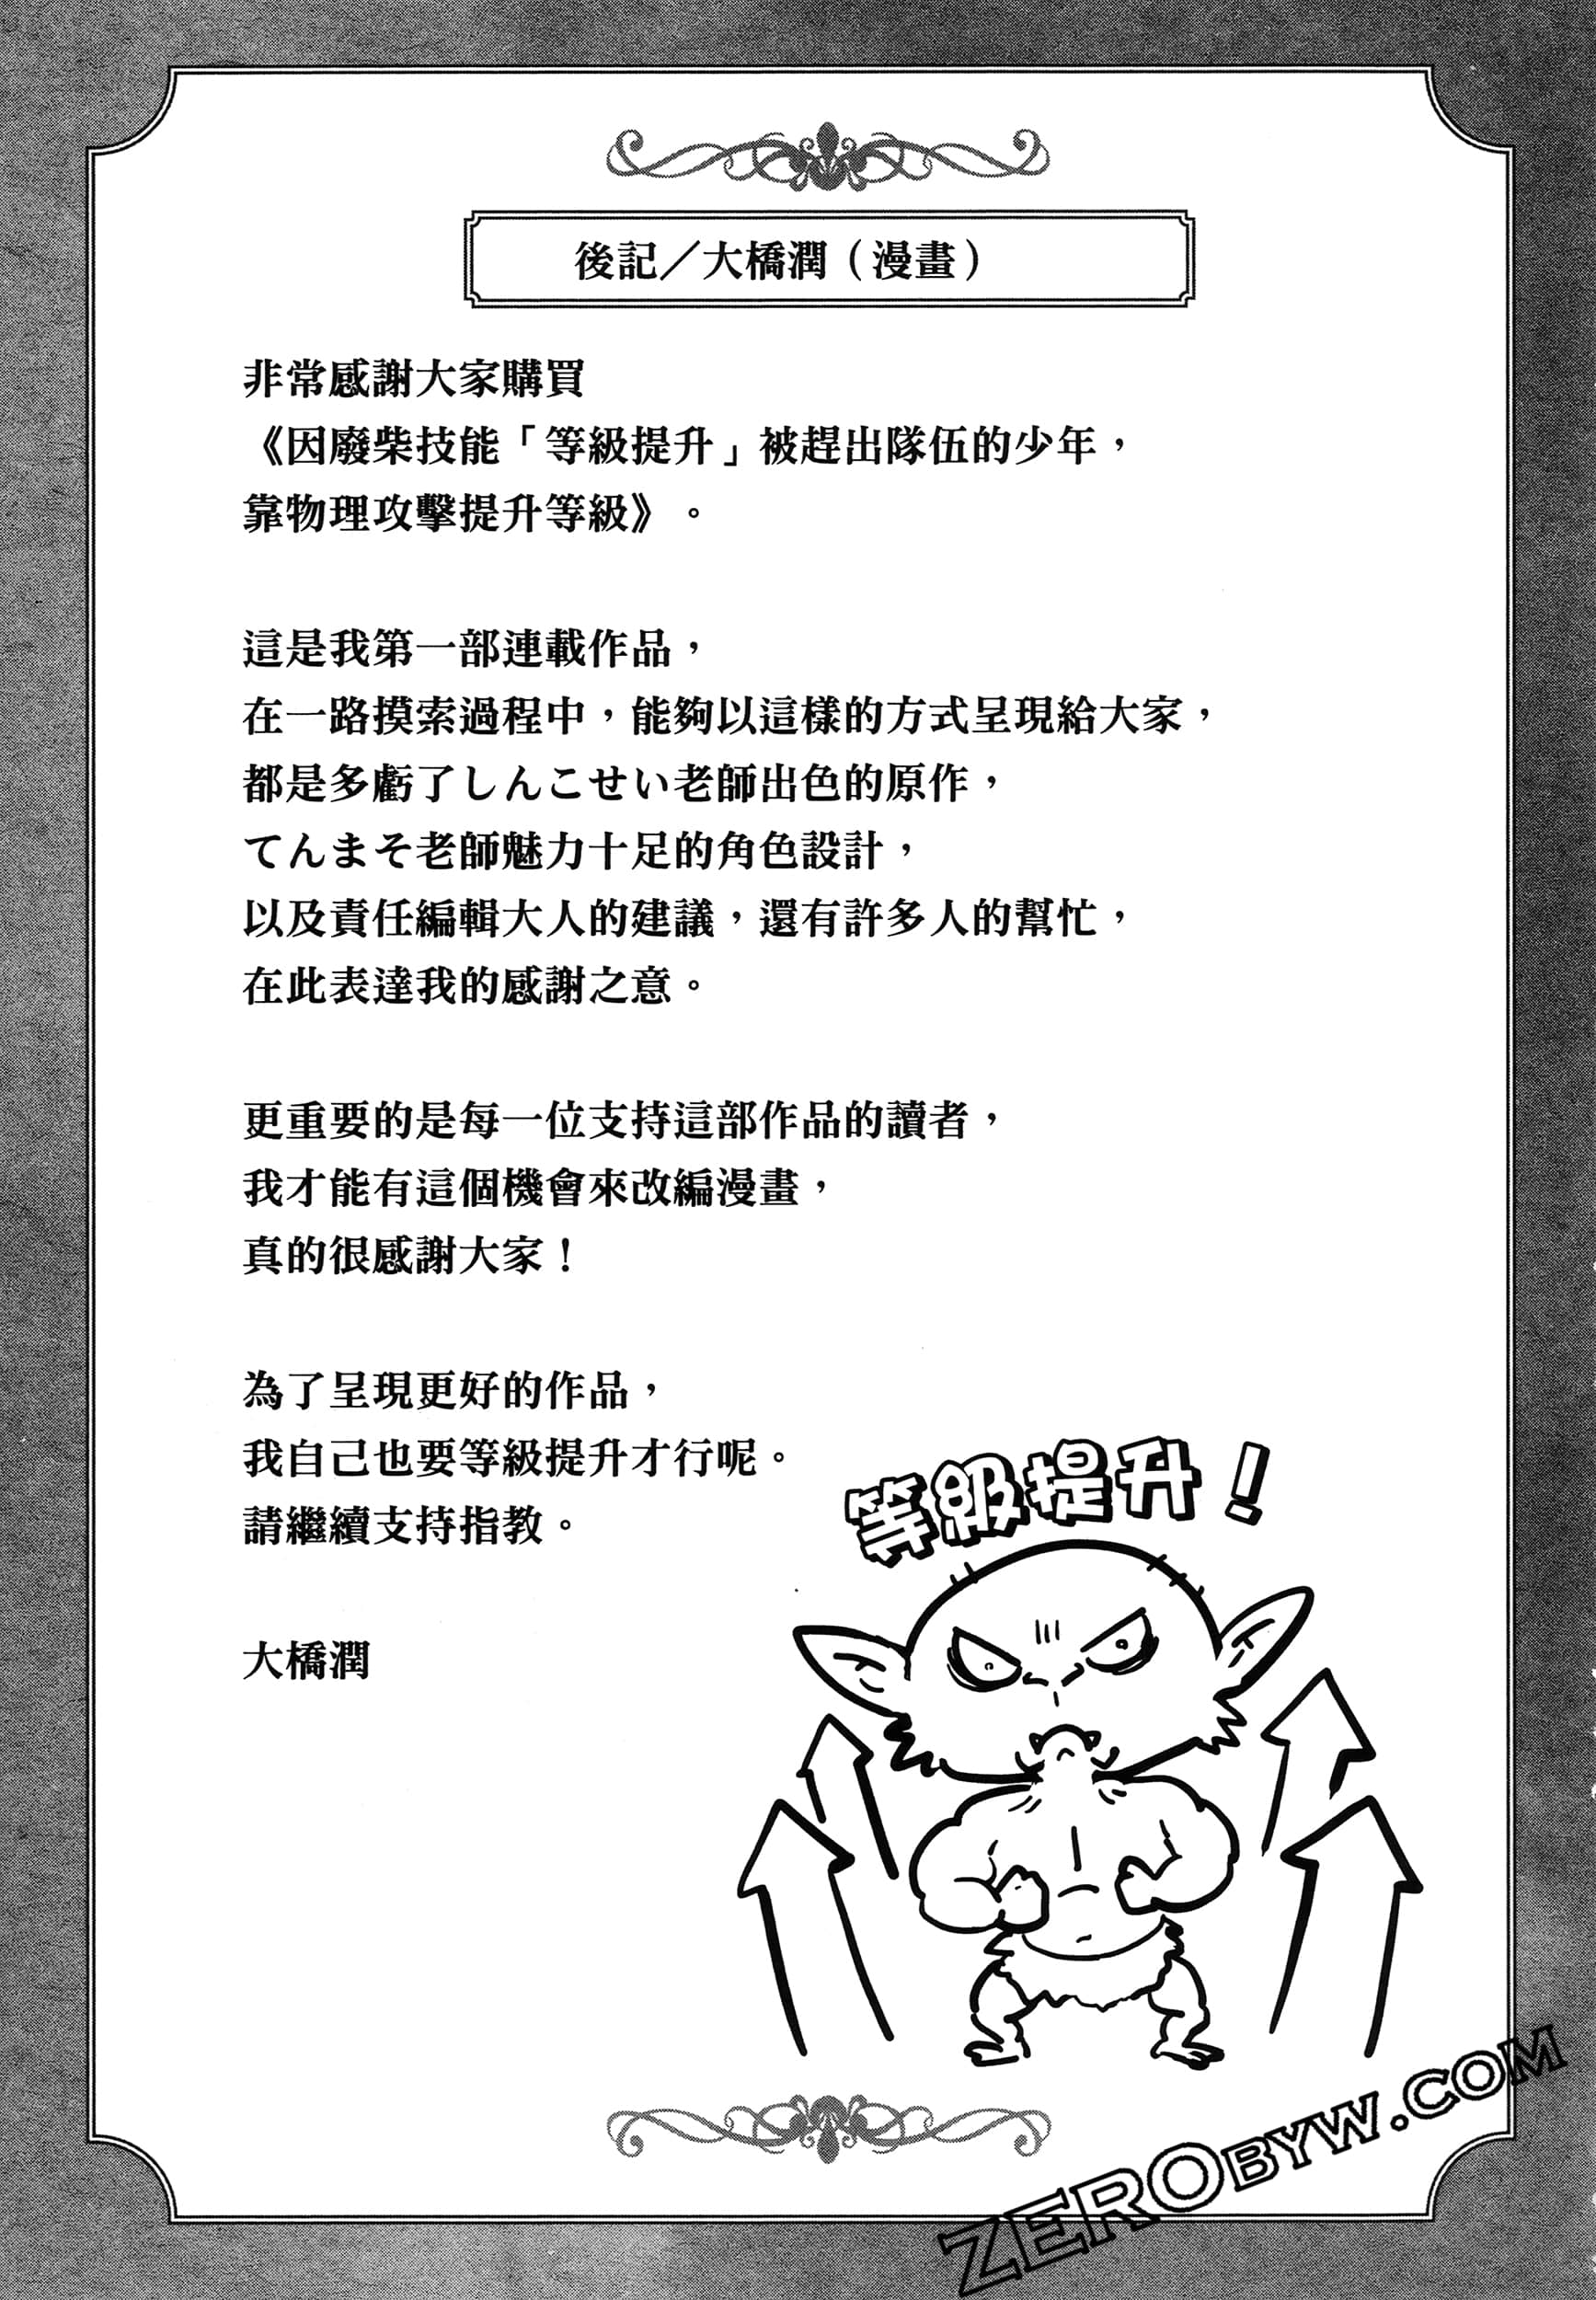 後記／大橋潤（漫畫）
非常感謝大家購買
《因廢柴技能「等級提升」被趕出隊伍的少年，
靠物理攻擊提升等級》。
這是我第一部連載作品，
在一路摸索過程中，能夠以這樣的方式呈現給大家，
都是多虧了しんこせい老師出色的原作，
てんまそ老師魅力十足的角色設計，
以及責任編輯大人的建議，還有許多人的幫忙，
在此表達我的感謝之意。
更重要的是每一位支持這部作品的讀者，
我才能有這個機會來改編漫畫，
真的很感謝大家！
為了呈現更好的作品，
我自己也要等級提升才行呢。
請繼續支持指教。
大橋潤
等級提升！
ZEROBYW.COM